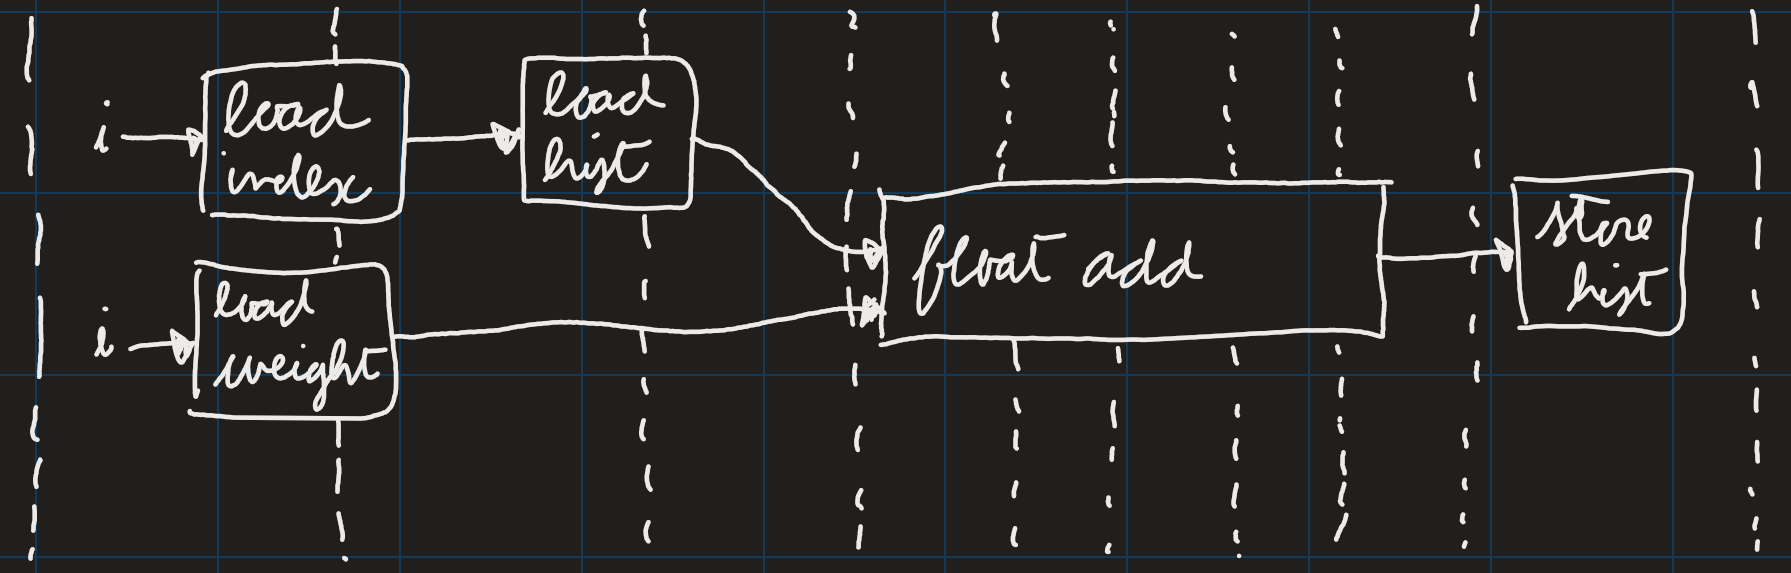 i
load
index
load
hist
i
load
weight
float add
store
hist